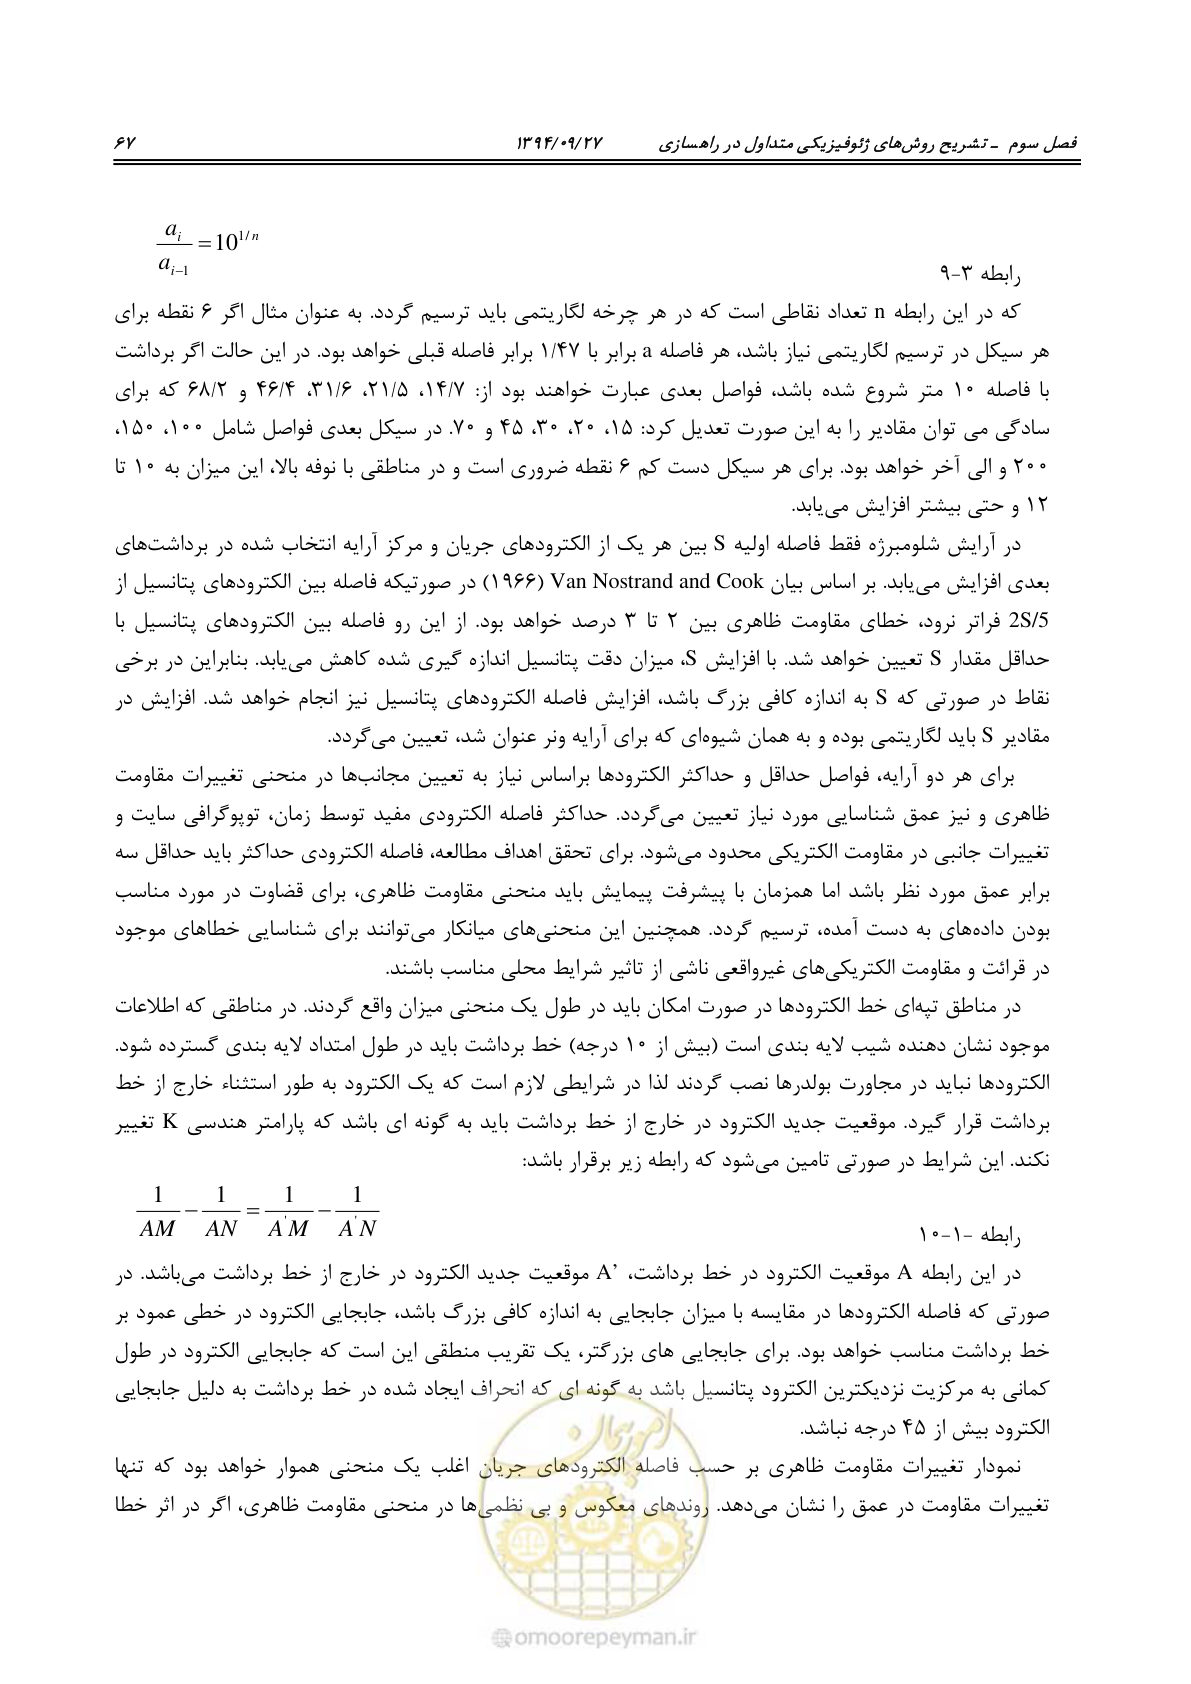 فصل سوم ـ تشریح روش‌های ژئوفیزیکی متداول در راهسازی ۱۳۹۴/۰۹/۲۷ ۶۷
a_i / a_{i−1} = 10^{1/n}
رابطه ۳-۹
که در این رابطه n تعداد نقاطی است که در هر چرخه لگاریتمی باید ترسیم گردد. به عنوان مثال اگر ۶ نقطه برای
هر سیکل در ترسیم لگاریتمی نیاز باشد، هر فاصله a برابر با ۱/۴۷ برابر فاصله قبلی خواهد بود. در این حالت اگر برداشت
با فاصله ۱۰ متر شروع شده باشد، فواصل بعدی عبارت خواهند بود از: ۱۴/۷، ۲۱/۵، ۳۱/۶، ۴۶/۴ و ۶۸/۲ که برای
سادگی می توان مقادیر را به این صورت تعدیل کرد: ۱۵، ۲۰، ۳۰، ۴۵ و ۷۰. در سیکل بعدی فواصل شامل ۱۰۰، ۱۵۰،
۲۰۰ و الی آخر خواهد بود. برای هر سیکل دست کم ۶ نقطه ضروری است و در مناطقی با نوفه بالا، این میزان به ۱۰ تا
۱۲ و حتی بیشتر افزایش می‌یابد.
در آرایش شلومبرژه فقط فاصله اولیه S بین هر یک از الکترودهای جریان و مرکز آرایه انتخاب شده در برداشت‌های
بعدی افزایش می‌یابد. بر اساس بیان Van Nostrand and Cook (۱۹۶۶) در صورتیکه فاصله بین الکترودهای پتانسیل از
2S/5 فراتر نرود، خطای مقاومت ظاهری بین ۲ تا ۳ درصد خواهد بود. از این رو فاصله بین الکترودهای پتانسیل با
حداقل مقدار S تعیین خواهد شد. با افزایش S، میزان دقت پتانسیل اندازه گیری شده کاهش می‌یابد. بنابراین در برخی
نقاط در صورتی که S به اندازه کافی بزرگ باشد، افزایش فاصله الکترودهای پتانسیل نیز انجام خواهد شد. افزایش در
مقادیر S باید لگاریتمی بوده و به همان شیوه‌ای که برای آرایه ونر عنوان شد، تعیین می‌گردد.
برای هر دو آرایه، فواصل حداقل و حداکثر الکترودها براساس نیاز به تعیین مجانب‌ها در منحنی تغییرات مقاومت
ظاهری و نیز عمق شناسایی مورد نیاز تعیین می‌گردد. حداکثر فاصله الکترودی مفید توسط زمان، توپوگرافی سایت و
تغییرات جانبی در مقاومت الکتریکی محدود می‌شود. برای تحقق اهداف مطالعه، فاصله الکترودی حداکثر باید حداقل سه
برابر عمق مورد نظر باشد اما همزمان با پیشرفت پیمایش باید منحنی مقاومت ظاهری، برای قضاوت در مورد مناسب
بودن داده‌های به دست آمده، ترسیم گردد. همچنین این منحنی‌های میانکار می‌توانند برای شناسایی خطاهای موجود
در قرائت و مقاومت الکتریکی‌های غیرواقعی ناشی از تاثیر شرایط محلی مناسب باشند.
در مناطق تپه‌ای خط الکترودها در صورت امکان باید در طول یک منحنی میزان واقع گردند. در مناطقی که اطلاعات
موجود نشان دهنده شیب لایه بندی است (بیش از ۱۰ درجه) خط برداشت باید در طول امتداد لایه بندی گسترده شود.
الکترودها نباید در مجاورت بولدرها نصب گردند لذا در شرایطی لازم است که یک الکترود به طور استثناء خارج از خط
برداشت قرار گیرد. موقعیت جدید الکترود در خارج از خط برداشت باید به گونه ای باشد که پارامتر هندسی K تغییر
نکند. این شرایط در صورتی تامین می‌شود که رابطه زیر برقرار باشد:
1/AM − 1/AN = 1/A'M − 1/A'N
رابطه -۱-۱۰
در این رابطه A موقعیت الکترود در خط برداشت، A’ موقعیت جدید الکترود در خارج از خط برداشت می‌باشد. در
صورتی که فاصله الکترودها در مقایسه با میزان جابجایی به اندازه کافی بزرگ باشد، جابجایی الکترود در خطی عمود بر
خط برداشت مناسب خواهد بود. برای جابجایی های بزرگتر، یک تقریب منطقی این است که جابجایی الکترود در طول
کمانی به مرکزیت نزدیکترین الکترود پتانسیل باشد به گونه ای که انحراف ایجاد شده در خط برداشت به دلیل جابجایی
الکترود بیش از ۴۵ درجه نباشد.
نمودار تغییرات مقاومت ظاهری بر حسب فاصله الکترودهای جریان اغلب یک منحنی هموار خواهد بود که تنها
تغییرات مقاومت در عمق را نشان می‌دهد. روندهای معکوس و بی نظمی‌ها در منحنی مقاومت ظاهری، اگر در اثر خطا
امور پیمان
omoorepeyman.ir